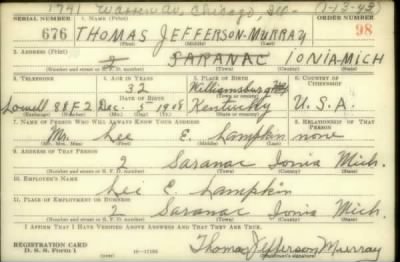 1791 Warren Av, Chicago, Ill. (1-13-43)
SERIAL NUMBER 1. NAME (Print) ORDER NUMBER
676 THOMAS JEFFERSON-MURRAY 98
2. ADDRESS (Print)
2 SARANAC IONIA-MICH
(Number and street or R. F. D. number) (Town) (County) (State)
3. TELEPHONE 4. AGE IN YEARS 5. PLACE OF BIRTH 6. COUNTRY OF CITIZENSHIP
32 Williamsburg
DATE OF BIRTH
Lowell 98F2 Dec. 5 1908 Kentucky U.S.A.
(Exchange) (Number) (Mo.) (Day) (Yr.) (State or country)
7. NAME OF PERSON WHO WILL ALWAYS KNOW YOUR ADDRESS 8. RELATIONSHIP OF THAT PERSON
Mr. Lee E. Lampkin none
(Mr., Mrs., Miss) (First) (Middle) (Last)
9. ADDRESS OF THAT PERSON
2 Saranac Ionia Mich.
(Number and street or R. F. D. number) (Town) (County) (State)
10. EMPLOYER'S NAME
Lee E. Lampkin
11. PLACE OF EMPLOYMENT OR BUSINESS
2 Saranac Ionia Mich.
(Number and street or R. F. D. number) (Town) (County) (State)
I AFFIRM THAT I HAVE VERIFIED ABOVE ANSWERS AND THAT THEY ARE TRUE.
REGISTRATION CARD
D. S. S. Form 1 Thomas Jefferson Murray
(Registrant's signature)